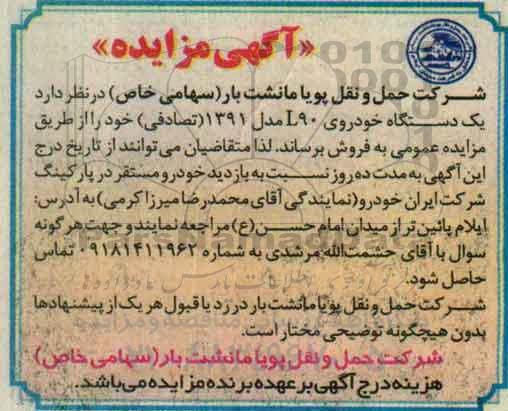 «آگهی مزایده»
شرکت حمل و نقل پویا مانشت بار (سهامی خاص) در نظر دارد
یک دستگاه خودروی L۹۰ مدل ۱۳۹۱(تصادفی) خود را از طریق
مزایده عمومی به فروش برساند. لذا متقاضیان می توانند از تاریخ درج
این آگهی به مدت ده روز نسبت به بازدید خودرو مستقر در پارکینگ
شرکت ایران خودرو (نمایندگی آقای محمدرضا میرزا کرمی) به آدرس:
ایلام پائین تر از میدان امام حسن(ع) مراجعه نمایند و جهت هر گونه
سوال با آقای حشمت‌الله مرشدی به شماره ۰۹۱۸۱۴۱۱۹۶۲ تماس
حاصل شود.
شرکت حمل و نقل پویا مانشت بار در رد یا قبول هر یک از پیشنهادها
بدون هیچگونه توضیحی مختار است.
شرکت حمل و نقل پویا مانشت بار (سهامی خاص)
هزینه درج آگهی بر عهده برنده مزایده می باشد.